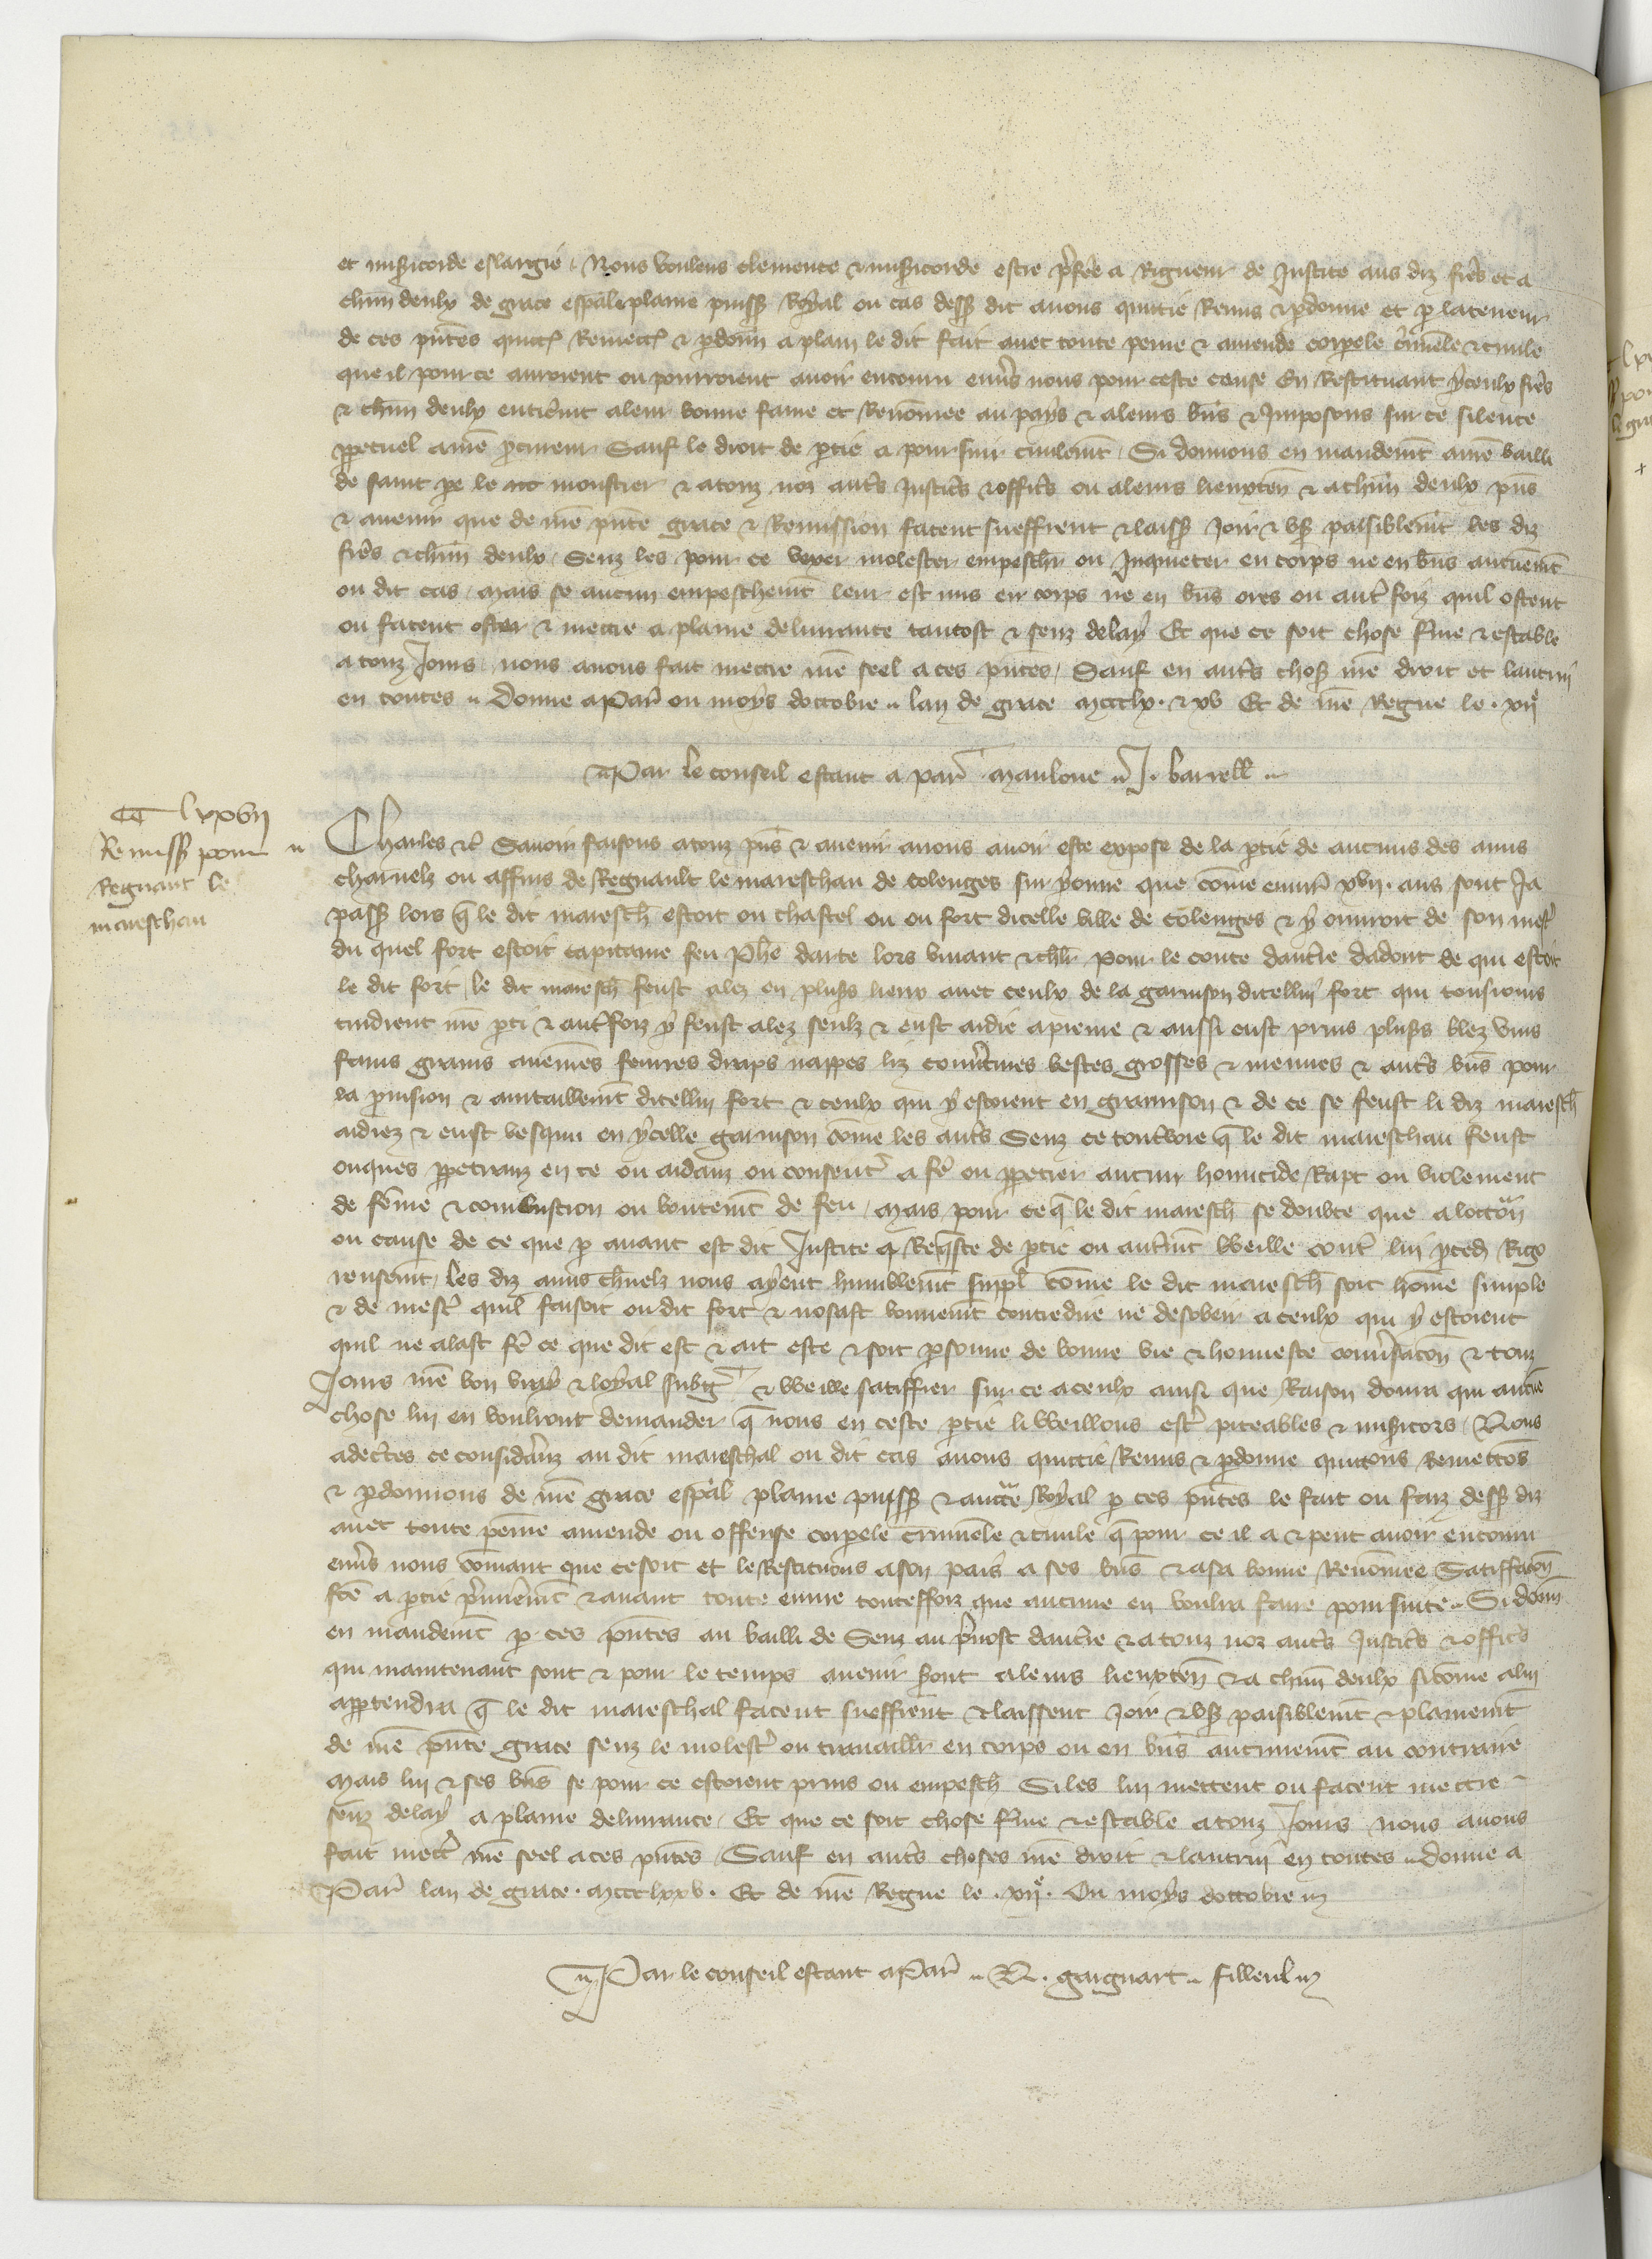 et mis̃icorde eslargie. Nous voulens clemence & mis̃icorde estre p̃feree a Rigueur de Justice aus diz freres et a
chũn deulx de grace esp̃al & plaine puiss̃ Royal ou cas dess̃ dit auons quittie Remis & p̱donne et p̱ la teneur
de ces pñtes quitt̃ Remett̃ & p̱donñ a plain le dit fait auec toute peine & amende corpele crim̃ele & ciuile
que il pour ce auroient ou pourroient auoir encouru enũs nous pour ceste cause En Restituant yceulx freres
& chũn deulx entierm̃t a leur bonne fame et Renõmee au pays & a leurs bñs & Imposons sur ce silence
ppetuel a nr̃e pcureur Sauf le droit de ptie a poursuir ciuilem̃t Si donnons en mandem̃t a nr̃e bailli
de saint pe le moustier & a touz noz autr̃s Justic̃s & offic̃s ou a leurs lieuxteñ & a chũn deulx pñs
& auenir que de nr̃e pñte grace & Remission facent sueffrent & laiss̃ Joir & vs̃ paisiblem̃t les diz
freres & chũn deulx Senz les pour ce vexer molester empeschr̃ ou Inquieter en corps ne en bñs aucunem̃t
ou dit cas mais se aucun empeschem̃t leur est mis en corps ne en bñs ores ou autrefoiz quil ostent
ou facent oster & mettre a plaine deliurance tantost & senz delay Et que ce soit chose ferme & estable
a touz Jours nous auons fait mettre nr̃e seel a ces pñtes, Sauf en autr̃s chos̃ nr̃e droit et lautruy
en toutes Donne a Par̃ ou moys doctobre lan de grace mccclx. & xv Et de nr̃e Regne le. xije
Par le conseil estant a par̃ Mauloue J. barrell̃
lxxvij
Remiss̃ pour
Regnaut le
mareschau
Charles &c̃ Sauoir faisons a touz pñs & auenir a nous auoir este expose de la ptie de aucuns des amis
charnelz ou affins de Regnault le mareschau de Colenges sur yonne que cõme enuir̃ xvij. ans sont Ja
pass̃ lors q̃ le dit maresch̃ estoit ou chastel ou ou fort dicelle ville de colenges & y ouuroit de son mest̃
du quel fort estoit capitaine feu Ph̃e darte lors viuant & chlr̃ pour le conte dauc̃re dadont de qui estoit
le dit fort, le dit maresch̃ feust alez en plus̃s lieux auec ceulx de la garnison dicellui fort qui tousiours
tindrent nr̃e pti & autrefoiz y feust alez seulz & eust aidie a prenre & aussi eust prins plus̃s blez vins
fains grains auenes feurres draps nappes liz couutures bestes grosses & menues & autr̃s bñs pour
la prouision & auitaillem̃t dicellui fort & ceulx qui y estoient en grarnison & de ce se feust li diz maresch̃
aidiez & eust vesqui en ycelle garnison cõme les autr̃s Senz ce toutuoie q̃ le dit mareschau feust
onques ppetranz en ce ou aidanz ou consent̃ a fẽ ou ppetrer aucun homicide Rapt ou violement
de fẽme & combustion ou boutem̃t de feu, mais pour ce q̃ le dit maresch̃ se doubte que a loccõn
ou cause de ce que p̱ auant est dit Justice a Req̃ste de ptie ou autrem̃t Vueille contr̃ lui pced̃ Rigo
reusem̃t, les diz amis ch̃nelz nous ayent humblem̃t suppl̃ cõme le dit maresch̃ soit hõme simple
& de mest̃ quil faisoit ou dit fort & nosast bonnem̃t contredire ne desobeir a ceulx qui y estoient
quil ne alast fẽ ce que dit est & ait este & soit psonne de bonne vie & honneste conũsacõn & touz
Jours nr̃e bon vray & loyal subg̃t & Vueille satiffier sur ce a ceulx ainsi que Raison donra qui aucũe
chose lui en vouliront demander q̃ nous en ceste ptie li Vueillons est̃ piteables & mis̃icors, Nous
adectes ce considãnz au dit mareschal ou dit cas auons quittie Remis & p̱donne quittons Remettõs
& p̱donnons de nr̃e grace esp̃al plaine puiss̃ & auct̃te Royal p̱ ces pñtes le fait ou faiz dess̃ diz
auec toute peine amende ou offense corpele crimin̄ele & ciuile q̃ pour ce il a & peut auoir encouru
enũs nous cõmant que ce soit et le Restituons a son pais a ses bñs & a sa bonne Renõmee Satiffacõn
fc̃e a ptie p̃mierem̃t & auant toute euure toutesfoiz que aucune en vouldra faire poursuite Si donñ
en mandem̃t p̱ ces pñtes au bailli de Senz au p̃uost dauc̃re & a touz noz autr̃s Justic̃s & offic̃s
qui maintenant sont & pour le temps auenir s̃ont a leurs lieuxteñ & a chũn deulx si cõme a lui
appartendra q̃ le dit mareschal facent sueffrent & laissent Joir & vs̃ paisiblem̃t & plainem̃t
de nr̃e pñte grace senz le molest̃ ou trauaillr̃ en corps ou en bñs aucunem̃t au contraire
Mais lui & ses bñs se pour ce estoient prins ou empesch̃ Si les lui mettent ou facent mettre
senz delay a plaine deliurance, Et que ce soit chose ferme & estable a touz Jours nous auons
fait mett̃ nr̃e seel a ces pñtes Sauf en autr̃s choses nr̃e droit & lautruy en toutes donne a
Par̃ lan de grace. mccclxxv. Et de nr̃e Regne le. xije. Ou moys doctobre
Par le conseil estant a Par̃ N. gaignart filleul